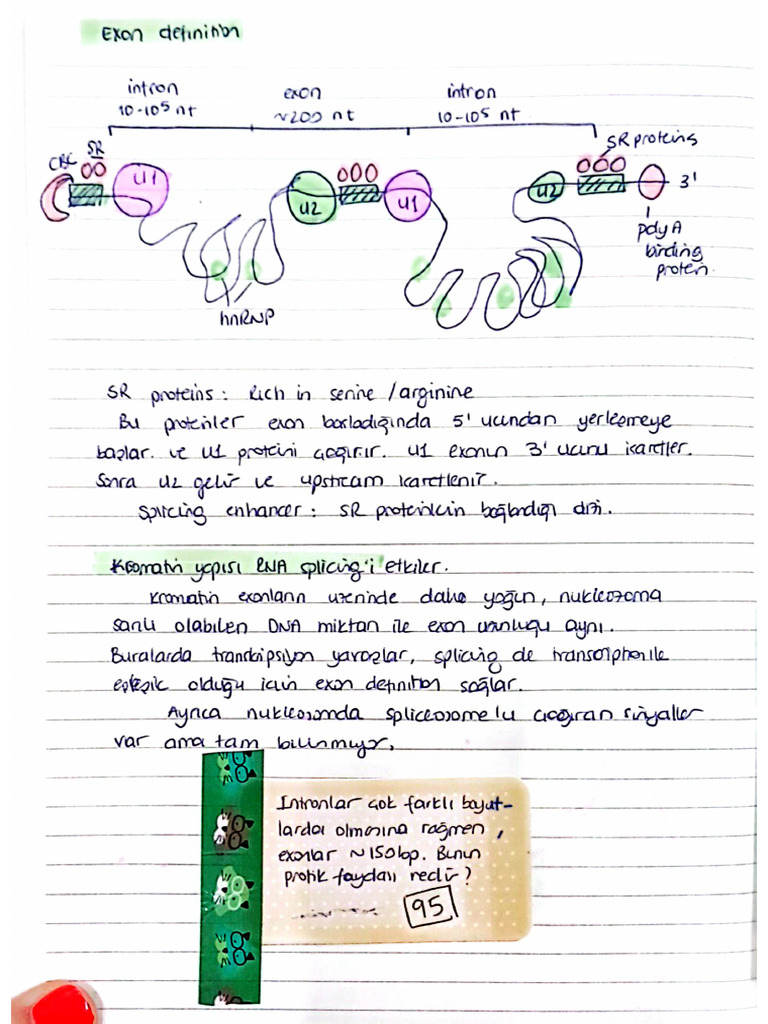 Exon definition
intron exon intron
10-10⁵ nt ~200 nt 10-10⁵ nt
CBC SR SR proteins
U1 U2 U1 U2 3'
poly A
binding
protein.
hnRNP
SR proteins: Rich in serine / arginine
Bu proteinler exon başladığında 5' ucundan yerleşmeye
başlar. ve U1 proteini çağırır. U1 exonun 3' ucunu işaretler.
Sonra U2 gelir ve upstream işaretlenir.
Splicing enhancer: SR proteinlein bağlandığı dizi.
Kromatin yapısı RNA splicing'i etkiler.
Kromatin exonların üzerinde daha yoğun, nukleozoma
sarılı olabilen DNA miktarı ile exon uzunluğu aynı.
Buralarda transkripsiyon yavaşlar, splicing de transcription ile
eşlepik olduğu için exon definition sağlar.
Ayrıca nukleozomda spliceosome'u çağıran sinyaller
var ama tam bilinmiyor.
Intronlar çok farklı boyut-
larda olmasına rağmen,
exonlar ~150bp. Bunun
pratik faydası nedir?
95